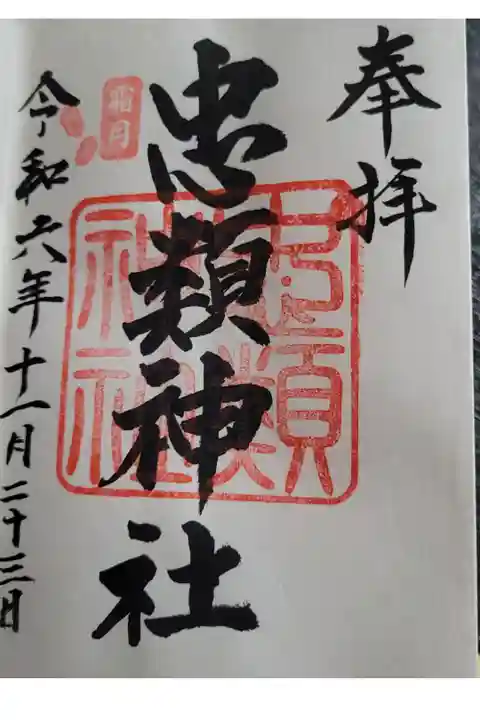 奉拝
忠類神社
霜月
令和六年十一月二十三日